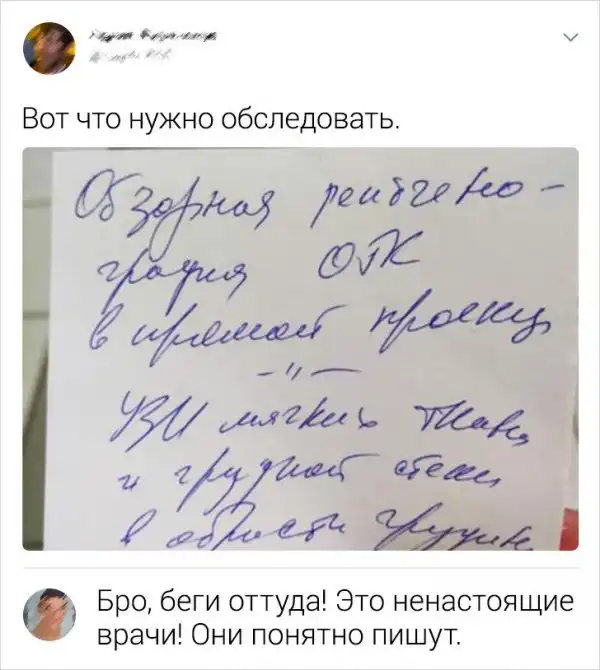 Вот что нужно обследовать.
Обзорная рентгено-
графия ОГК
в прямой проекции
-"-
УЗИ мягких ткани
и грудной стенки
в области грудин
Бро, беги оттуда! Это ненастоящие
врачи! Они понятно пишут.